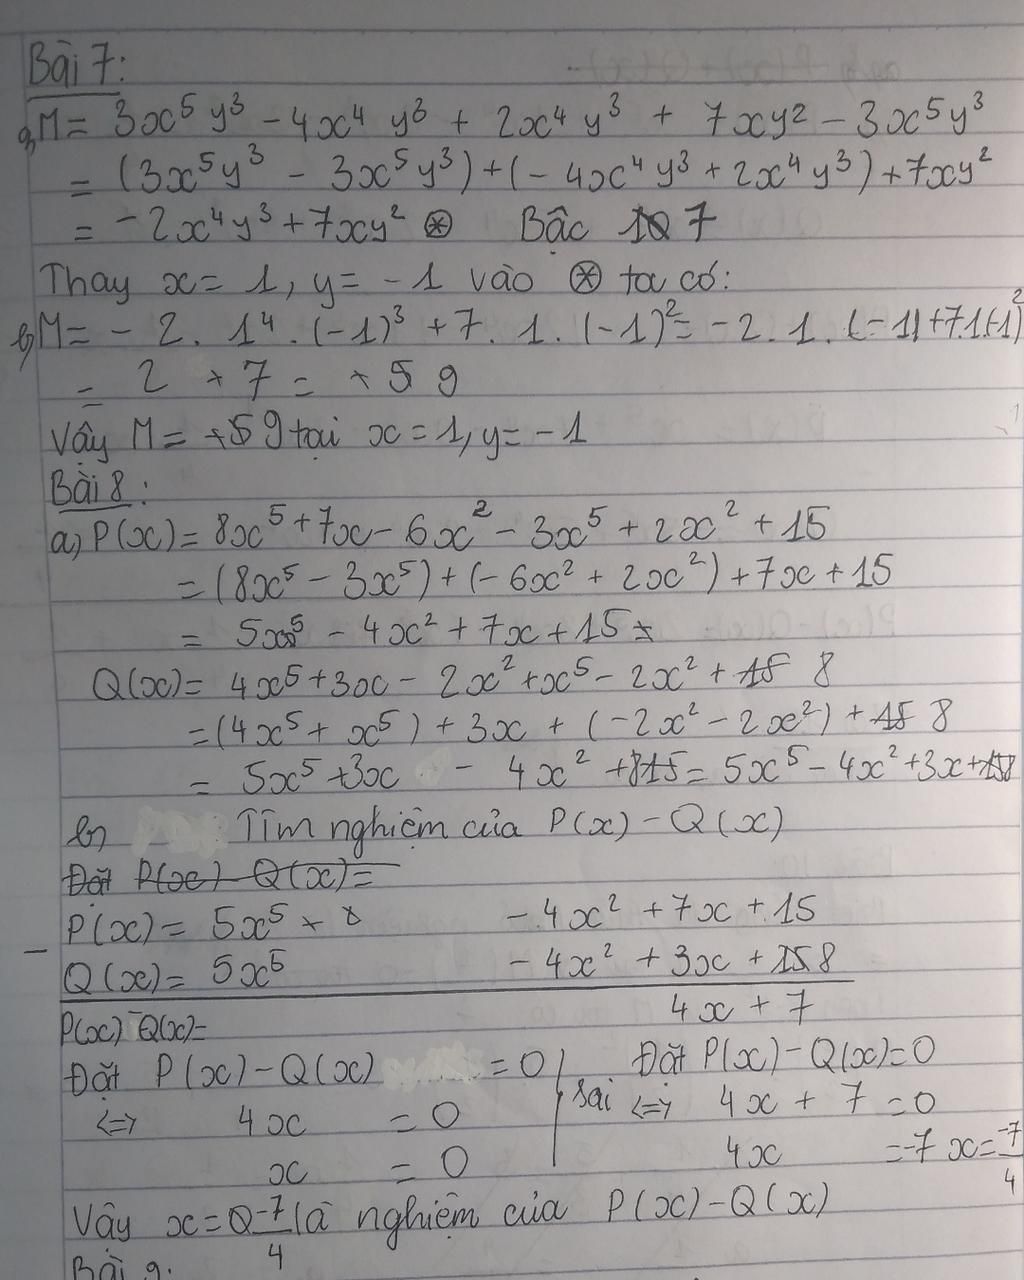 Bài 7:
a, M = 3x⁵y³ - 4x⁴y³ + 2x⁴y³ + 7xy² - 3x⁵y³
= (3x⁵y³ - 3x⁵y³) + (- 4x⁴y³ + 2x⁴y³) + 7xy²
= - 2x⁴y³ + 7xy² ⊛ Bậc 7
Thay x = 1, y = - 1 vào ⊛ ta có:
b, M = - 2 . 1⁴ . (-1)³ + 7 . 1 . (-1)² = - 2 . 1 . (-1) + 7.1.(-1)²
= 2 + 7 = 9
Vậy M = 9 tại x = 1, y = - 1
Bài 8:
a, P(x) = 8x⁵ + 7x - 6x² - 3x⁵ + 2x² + 15
= (8x⁵ - 3x⁵) + (- 6x² + 2x²) + 7x + 15
= 5x⁵ - 4x² + 7x + 15
Q(x) = 4x⁵ + 3x - 2x² + x⁵ - 2x² + 8
= (4x⁵ + x⁵) + 3x + (-2x² - 2x²) + 8
= 5x⁵ + 3x - 4x² + 8 = 5x⁵ - 4x² + 3x + 8
b, Tìm nghiệm của P(x) - Q(x)
Đặt P(x) - Q(x) =
P(x) = 5x⁵ - 4x² + 7x + 15
-
Q(x) = 5x⁵ - 4x² + 3x + 8
P(x) - Q(x) = 4x + 7
Đặt P(x) - Q(x) = 0 Đặt P(x) - Q(x) = 0
⇔ 4x = 0 Sai ⇔ 4x + 7 = 0
x = 0 4x = -7 x = -7/4
Vậy x = -7/4 là nghiệm của P(x) - Q(x)
Bài 9: